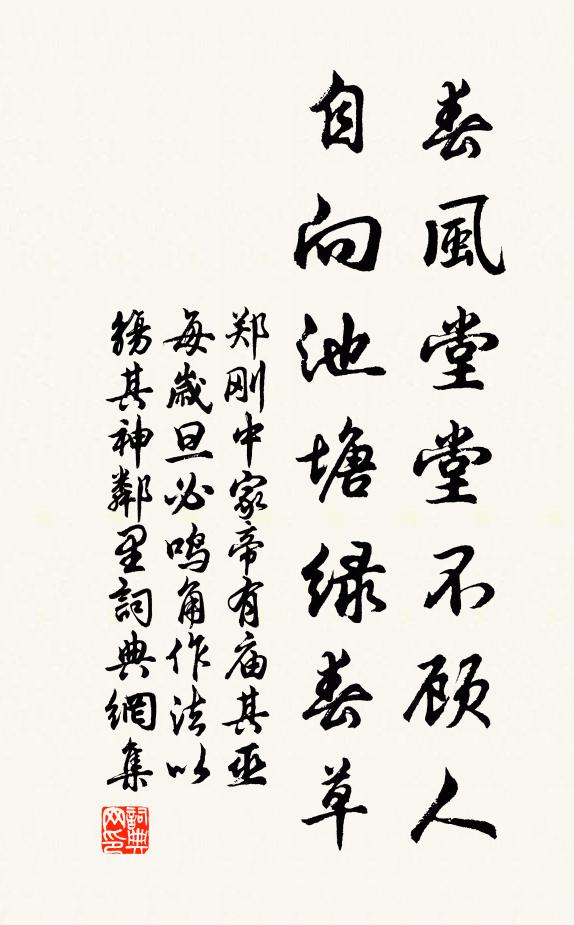 春風堂堂不顾人
自向池塘绿春草
郑刚中家帝有庙其巫
每歲旦必鸣角作法以
殇其神鄰里詞典網集
詞典
网印